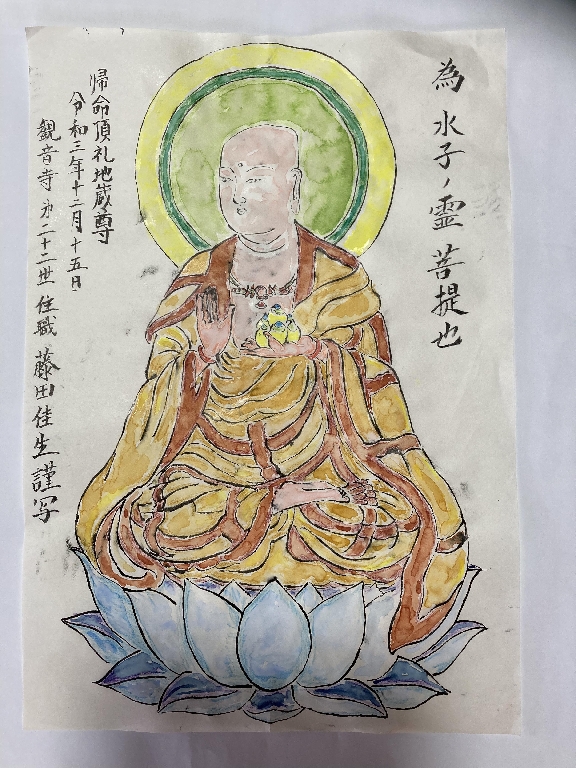 為水子ノ霊菩提也
帰命頂礼地蔵尊
令和三年十二月十五日
観音寺第二十二世住職藤田佳生謹写